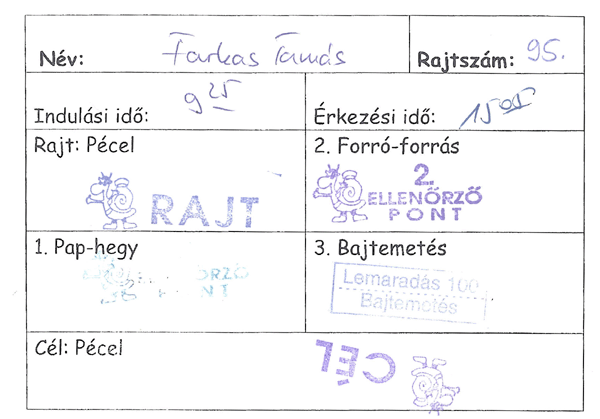 Név: Farkas Tamás
Rajtszám: 95.
Indulási idő: 9 25
Érkezési idő: 15 05
Rajt: Pécel
RAJT
2. Forró-forrás
2.
ELLENŐRZŐ
PONT
1. Pap-hegy
ÖRZŐ
PONT
3. Bajtemetés
Lemaradás 100
Bajtemetés
Cél: Pécel
CÉL